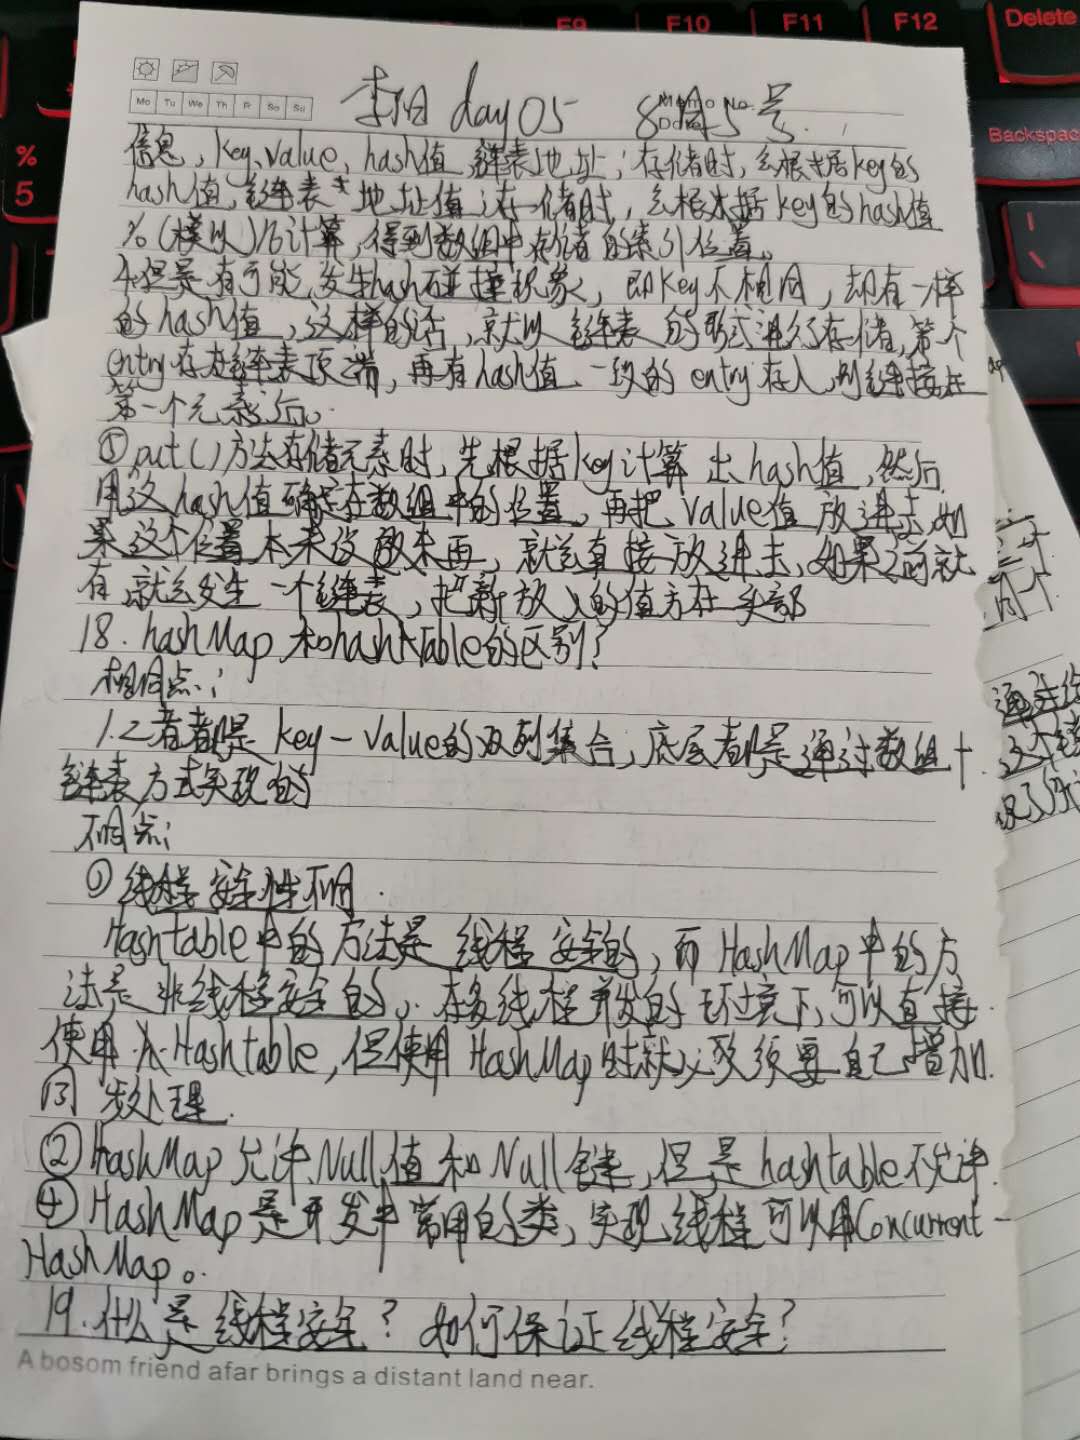 F9 F10 F11 F12 Delete
Backspac
%
5
Mo Tu We Th Fr Sa Su
Memo No.
Date
李阳 day05 8月5号.
信息, key, value, hash值, 链表地址; 存储时, 会根据key的
hash值, 链表地址值; 存储时, 会根据key的hash值
%(模以)16计算, 得到数组中存储的索引位置。
4.但是有可能发生hash碰撞现象, 即key不相同, 却有一样
的hash值, 这样的话, 就以链表的形式进行存储, 第一个
entry存在链表顶端, 再有hash值一致的entry存入, 则链接在
第一个元素后。
⑤put()方法存储元素时, 先根据key计算出hash值, 然后
用这hash值确定在数组中的位置, 再把value值放进去, 如
果这个位置本来没放东西, 就会直接放进去, 如果之前就
有, 就会发生一个链表, 把新放入的值方在头部
18. hashMap和hashtable的区别?
相同点:
1.2者都是key-value的双列集合, 底层都是通过数组+
链表方式实现的
不同点:
①线程安全性不同.
Hashtable中的方法是线程安全的, 而HashMap中的方
法是非线程安全的, 在多线程并发的环境下, 可以直接
使用Hashtable, 但使用HashMap时就必须要自己增加
同步处理.
②HashMap允许Null值和Null键, 但是hashtable不允许.
④HashMap是开发中常用的类, 实现线程可以用Concurrent-
HashMap。
19.什么是线程安全? 如何保证线程安全?
A bosom friend afar brings a distant land near.